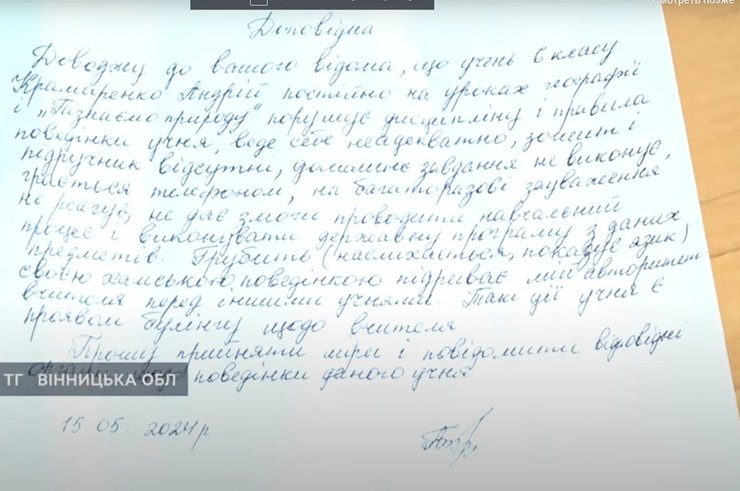 Смотреть позже
Доповідна
Доводжу до вашого відома, що учень 6 класу
Крамаренко Андрій постійно на уроках географії
і „Пізнаємо природу" порушує дисципліну і правила
поведінки учня, веде себе неадекватно, зошит і
підручник відсутні, домашнє завдання не виконує,
грається телефоном, на багаторазові зауваження
не реагує, не дає змоги проводити навчальний
процес і виконувати державну програму з даних
предметів. Грубить (насміхається, показує язик)
своєю хамською поведінкою підриває мій авторитет
вчителя перед іншими учнями. Такі дії учня є
проявом булінгу щодо вчителя
Прошу прийняти міри і повідомити відповідні
поведінки даного учня
ТГ ВІННИЦЬКА ОБЛ
15.05. 2024 р